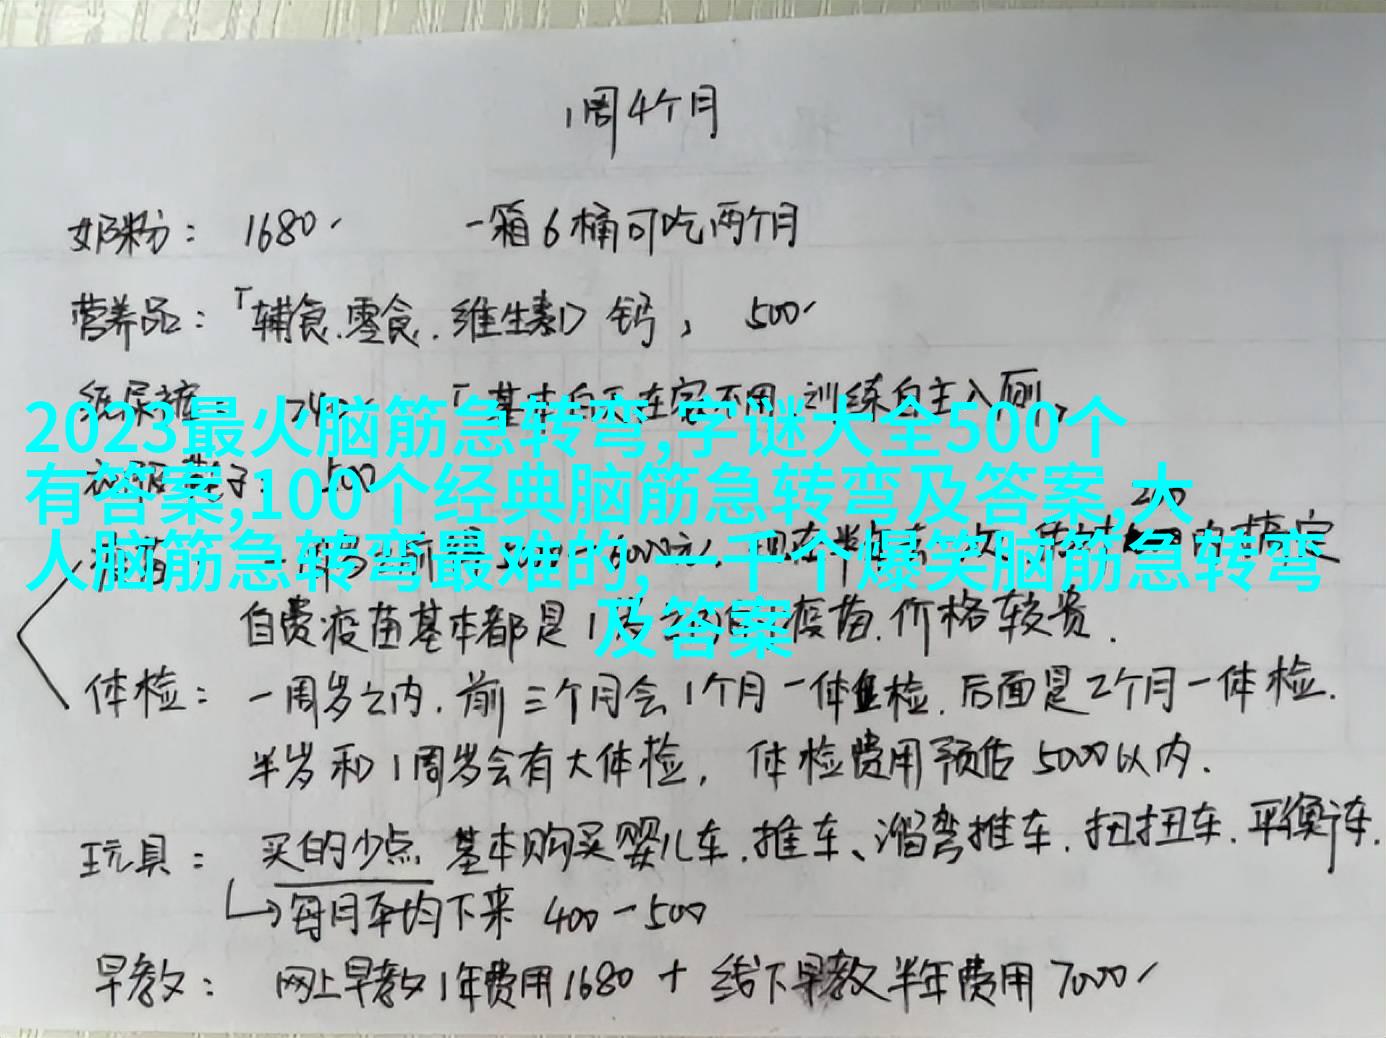 1周4个月
奶粉： 1680 一箱6桶可吃两个月
营养品：「辅食.零食.维生素D 钙， 500
纸尿裤 「基本白天在家不用 训练自主入厕，
2023最火脑筋急转弯,字谜大全500个
有答案,100个经典脑筋急转弯及答案,大
人脑筋急转弯最难的,一千个爆笑脑筋急转弯
及答案
衣服鞋子： 500
疫苗 200 内搞定
自费疫苗基本都是1 疫苗.价格较贵.
体检： 一周岁之内.前三个月会1个月一体检.后面是2个月一体检.
半岁和1周岁会有大体检， 体检费用预估5000以内.
玩具： 买的少点 基本购买婴儿车.推车、溜弯推车.扭扭车.平衡车.
每月平均下来 400-500
早教： 网上早教1年费用1680 + 线下早教半年费用7000